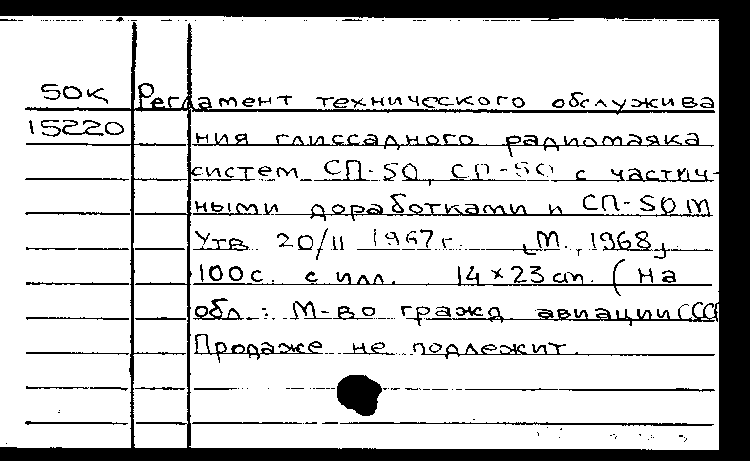 50К Регламент технического обслужива
15220 ния глиссадного радиомаяка
систем СП-50, СП-50 с частич-
ными доработками и СП-50М
Утв 20/II 1967г. [М., 1968]
100с. с илл. 14×23 см. (На
обл.: М-во гражд. авиации СССР
Продаже не подлежит.